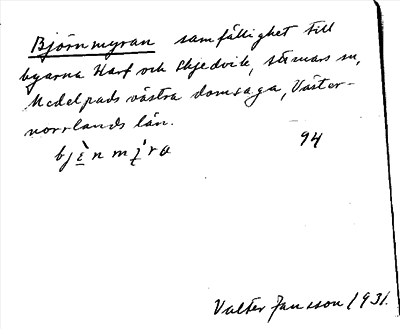 Björnmyran samfällighet till
byarna Harf och Skjedvik, Stömars sn,
Medelpads västra domsaga, Väster-
norrlands län.
94
Valter Jansson 1931.